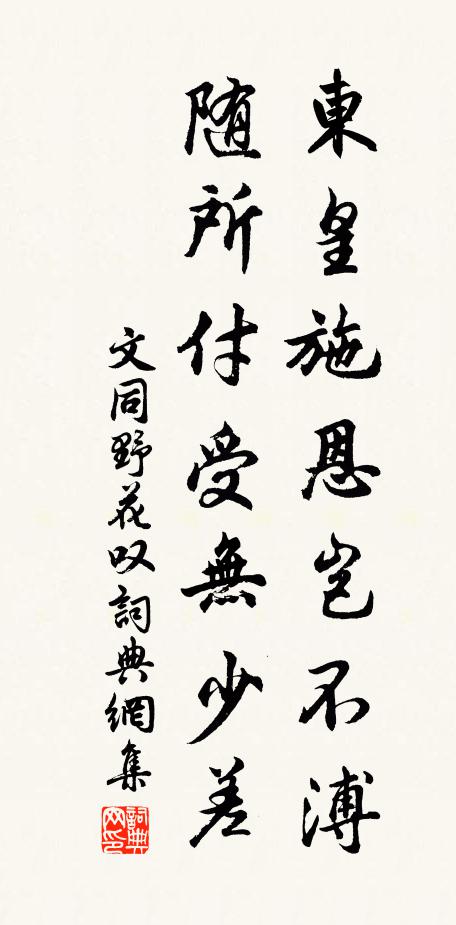 東皇施恩岂不溥
随所付受無少差
文同野花叹詞典網集
詞典网印